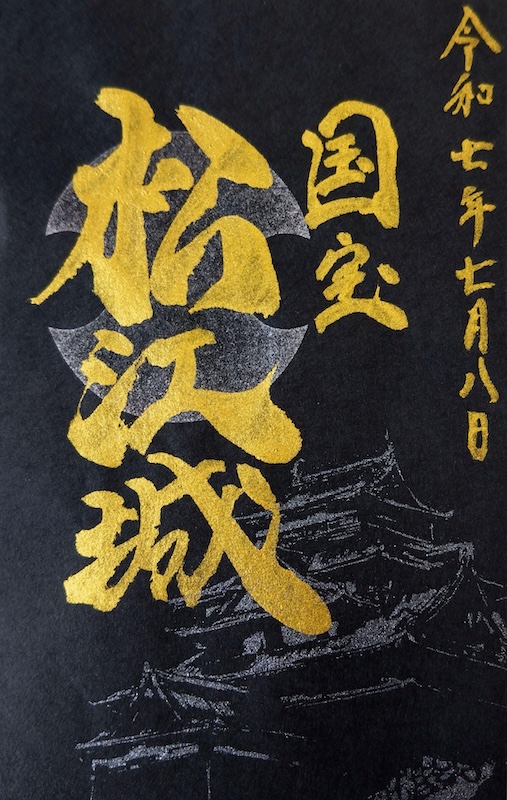 令和七年七月八日
国宝
松江城